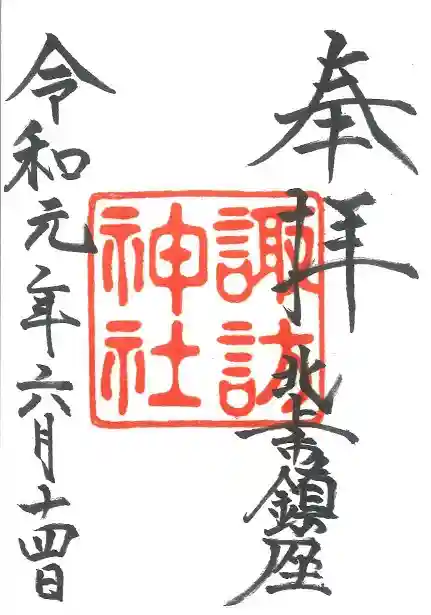 奉拝
北上市鎮座
諏訪
神社
令和元年六月十四日